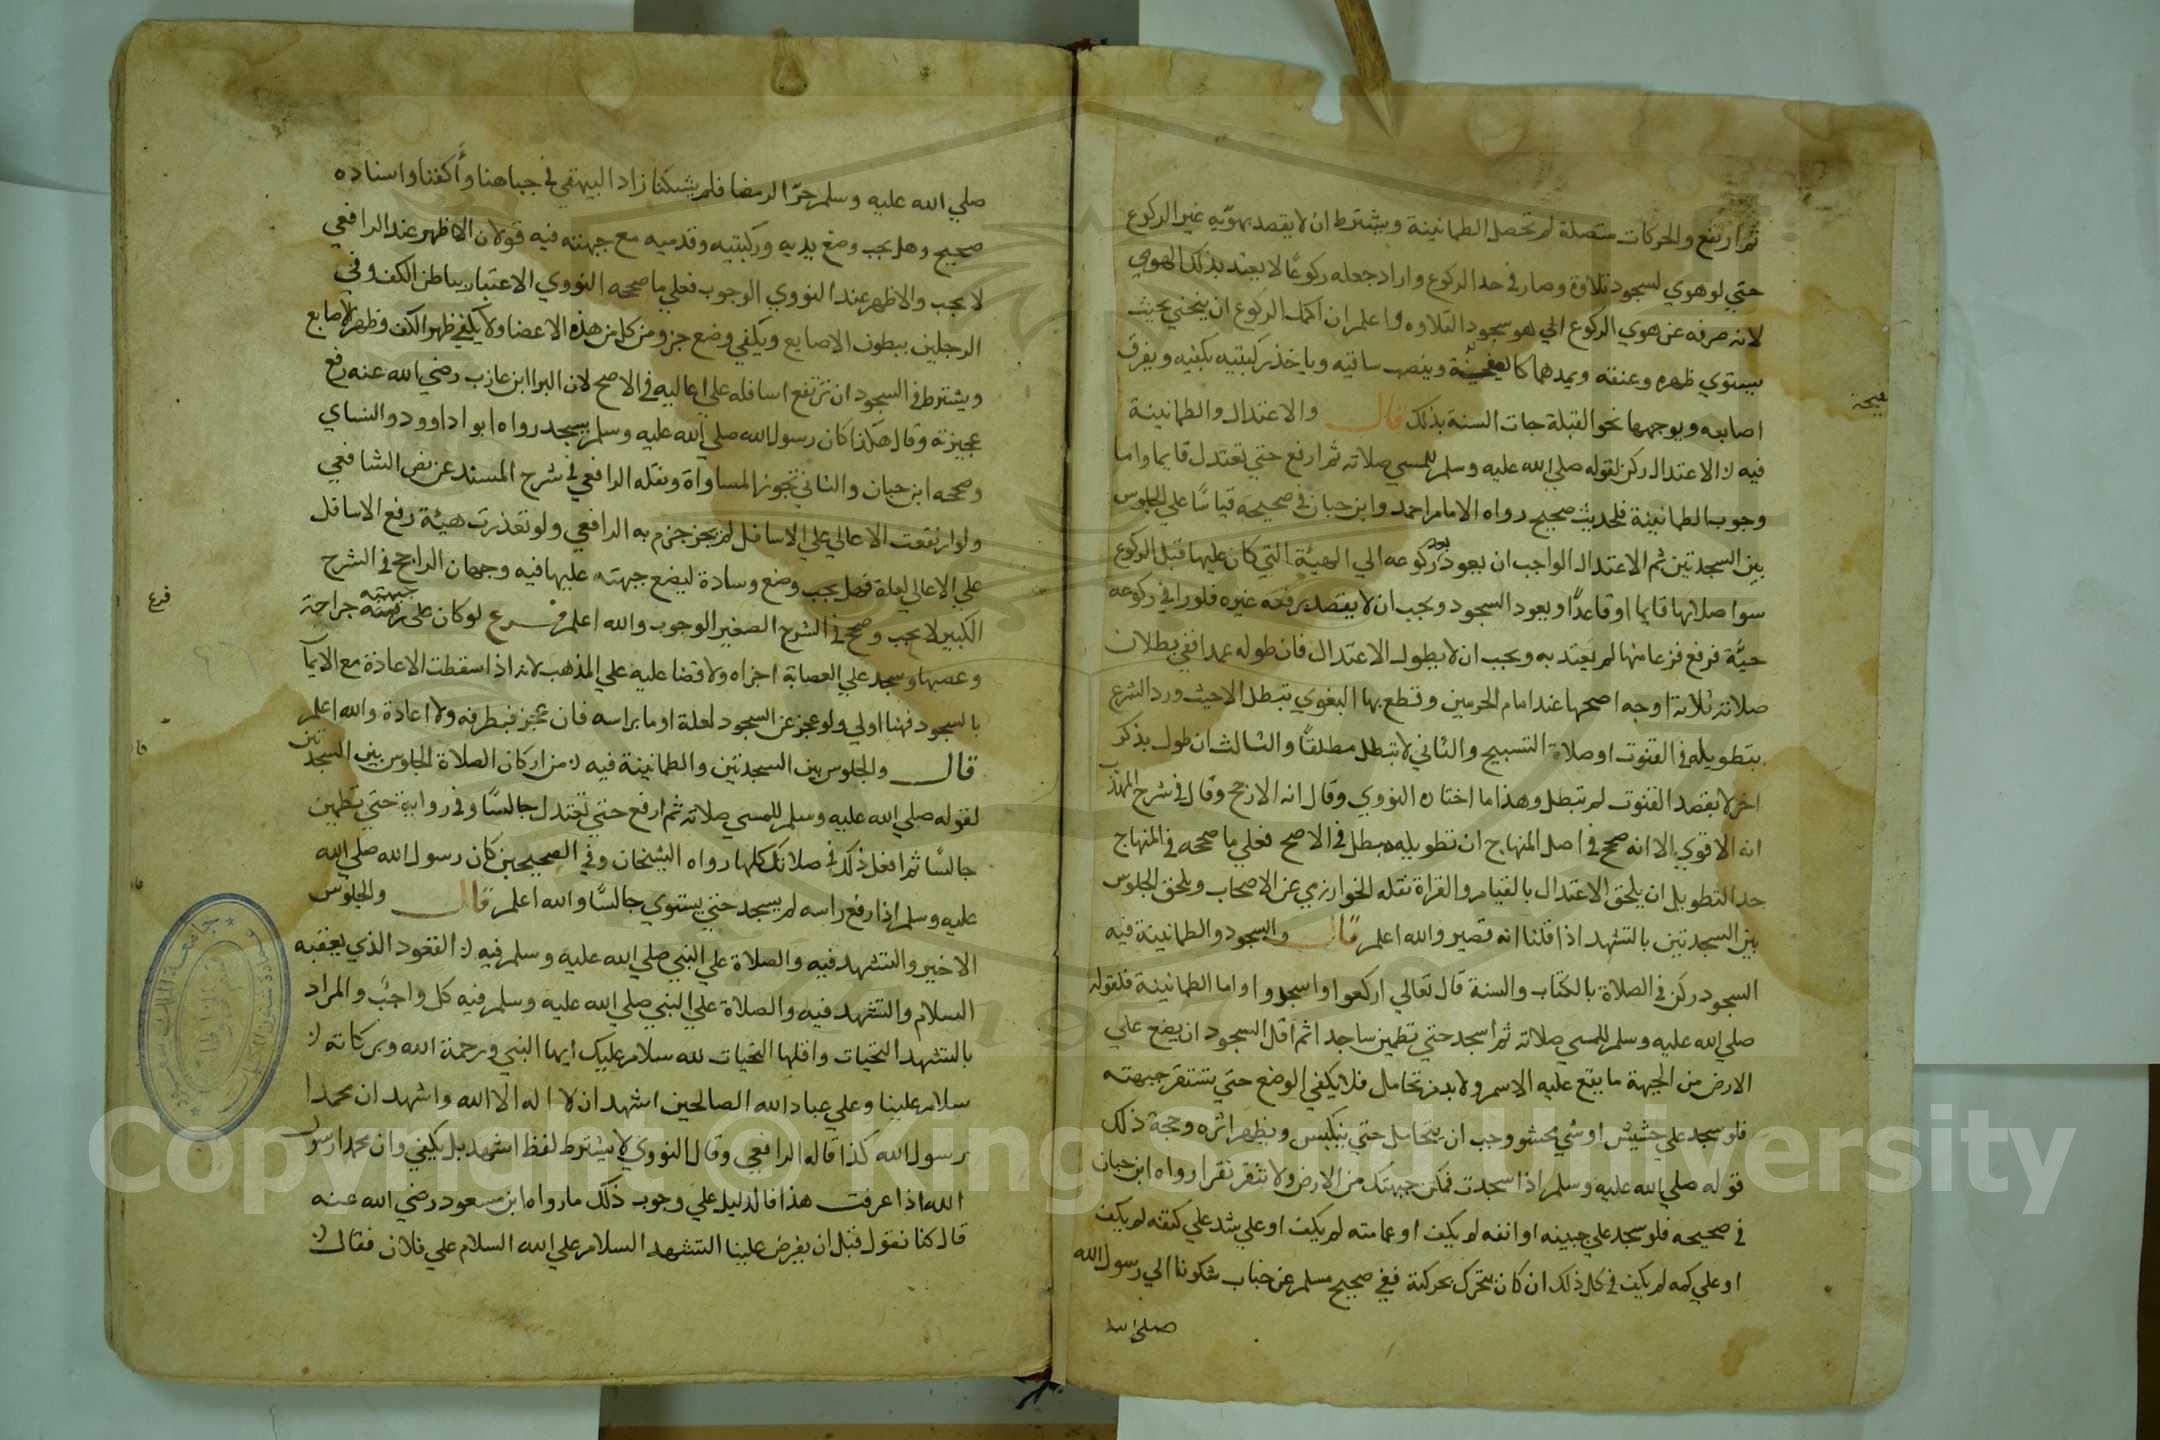 ثم ارتفع والحركات متصلة لم تحصل الطمانينة ويشترط ان لا يقصد بهويه غير الركوع
حتي لو هوي لسجود تلاوة وصار في حد الركوع واراد جعله ركوعًا لا يعتد بذلك الهوي
لانه صرفه عن هوي الركوع الي هو سجود التلاوه واعلم ان اكمل الركوع ان ينحني بحيث
يستوي ظهره وعنقه ويمدهما كالصفيحة وينصب ساقيه وياخذ ركبتيه بكفيه ويفرق
اصابعه ويوجهها نحو القبلة جات السنة بذلك قال والاعتدال والطمانينة
فيه ﻻ الاعتدال ركن لقوله صلي الله عليه وسلم للمسي صلاته ثم ارفع حتي تعتدل قايما واما
وجوب الطمانينة فلحديث صحيح رواه الامام احمد وابن حبان في صحيحه قياسًا علي الجلوس
بين السجدتين ثم الاعتدال الواجب ان يعود بعد ركوعه الي الهيئة التي كان عليها قبل الركوع
سوا صلاها قايما او قاعدًا ويعود السجود ويجب ان لا يقصد برفعه غيره فلو راي في ركوعه
حيَّة فرفع فزعا منها لم يعتد به ويجب ان لا يطول الاعتدال فان طوله عمدا ففي بطلان
صلاته ثلاثة اوجه اصحها عند امام الحرمين وقطع بها البغوي تبطل الا حيث ورد الشرع
بتطويله في القنوت او صلاة التسبيح والثاني لا تبطل مطلقًا والثالث ان طول بذكر
اخر لا يقصد القنوت لم تبطل وهذا ما اختاره النووي وقال انه الارجح وقال في شرح المهذب
انه الاقوي الا انه صحح في اصل المنهاج ان تطويله مبطل في الاصح فعلي ما صححه في المنهاج
حد التطويل ان يلحق الاعتدال بالقيام والقراة نقله الخوارزمي عن الاصحاب ويلحق الجلوس
بين السجدتين بالتشهد اذا قلنا انه قصير والله اعلم قال والسجود والطمانينة فيه
السجود ركن في الصلاة بالكتاب والسنة قال تعالي اركعوا واسجدوا واما الطمانينة فلقوله
صلي الله عليه وسلم للمسي صلاته ثم اسجد حتي تطمين ساجدا ثم اقل السجود ان يضع علي
الارض من الجبهة ما يقع عليه الاسم ولا بد من تحامل فلا يكفي الوضع حتي تستقر جبهته
فلو سجد علي حشيش او شي محشو وجب ان يتحامل حتي ينكبس ويظهر اثره وحجة ذلك
قوله صلي الله عليه وسلم اذا سجدت فمكن جبهتك من الارض ولا تنقر نقرا رواه ابن حبان
في صحيحه فلو سجد علي جبينه او انفه لم يكف او عمامته لم يكف او علي شد علي كتفه لم يكف
او علي كمه لم يكف في كل ذلك ان كان يتحرك بحركتة ففي صحيح مسلم عن خباب شكونا الي رسول الله
صلي الله
صلي الله عليه وسلم حرّ الرمضا فلم يشكنا زاد البيهقي في جباهنا وأكفنا واسناده
صحيح وهل يجب وضع يديه وركبتيه وقدميه مع جبهته فيه قولان الاظهر عند الرافعي
لا يجب والاظهر عند النووي الوجوب فعلي ما صححه النووي الاعتبار بباطن الكف وفي
الرجلين ببطون الاصابع ويكفي وضع جزو من كل من هذه الاعضا ولا يكفي ظهر الكف وظهر الاصابع
ويشترط في السجود ان ترتفع اسافله علي اعاليه في الاصح لان البرا ابن عازب رضي الله عنه رفع
عجيزته وقال هكذا كان رسول الله صلي الله عليه وسلم يسجد رواه ابو اداوود والنساي
وصححه ابن حبان والثاني تجوز المساواة ونقله الرافعي في شرح المسند عن نص الشافعي
ولو ارتفعت الاعالي علي الاسافل لم يجز جزم به الرافعي ولو تعذرت هيئة رفع الاسافل
علي الاعالي لعلة فهل يجب وضع وسادة ليضع جبهته عليها فيه وجهان الراجح في الشرح
الكبير لا يجب وصحح في الشرح الصغير الوجوب والله اعلم فرع لو كان على جبهته جراحة
فرع
وعصبها وسجد علي العصابة اجزاه ولا قضا عليه علي المذهب لانه اذا سقطت الاعادة مع الايمآ
بالسجود فهنا اولي ولو عجز عن السجود لعلة اوما براسه فان عجز فبطرفه ولا اعادة والله اعلم
قال والجلوس بين السجدتين والطمانينة فيه ﻻ من اركان الصلاة الجلوس بين السجدتين
لقوله صلي الله عليه وسلم للمسي صلاته ثم ارفع حتي تعتدل جالسًا وفي رواية حتي تطمين
جالسًا ثم افعل ذلك في صلاتك كلها رواه الشيخان وفي الصحيحين كان رسول الله صلي الله
عليه وسلم اذا رفع راسه لم يسجد حتي يستوي جالسًا والله اعلم قال والجلوس
الاخير والتشهد فيه والصلاة علي النبي صلي الله عليه وسلم فيه ﻻ القعود الذي يعقبه
السلام والتشهد فيه والصلاة علي النبي صلي الله عليه وسلم فيه كل واجب والمراد
بالتشهد التحيات واقلها التحيات لله سلام عليك ايها النبي ورحمة الله وبركاته
سلام علينا وعلي عباد الله الصالحين اشهد ان لا اله الا الله واشهد ان محمدا
رسول الله كذا قاله الرافعي وقال النووي لا يشترط لفظ اشهد بل يكفي وان محمدا رسول
الله اذا عرفت هذا فالدليل علي وجوب ذلك ما رواه ابن مسعود رضي الله عنه
قال كنا نقول قبل ان يفرض علينا التشهد السلام علي الله السلام علي فلان فقال
Copyright © King Saud University